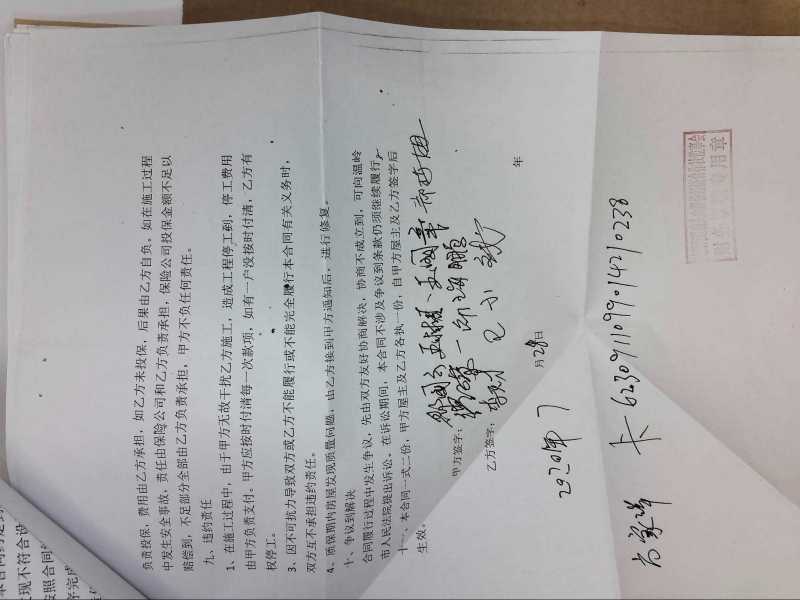 负责投保，费用由乙方承担，如乙方未投保，后果由乙方自负。如在施工过程
中发生安全事故，责任由保险公司和乙方负责承担，保险公司投保金额不足以
赔偿到，不足部分全部由乙方负责承担，甲方不负任何责任。
九、违约责任
1、在施工过程中，由于甲方无故干扰乙方施工，造成工程停工到，停工费用
由甲方负责支付。甲方应按时付清每一次款项，如有一户没按时付清，乙方有
权停工。
3、因不可抗力导致双方或乙方不能履行或不能完全履行本合同有关义务时，
双方互不承担违约责任。
4、质保期内房屋发现质量问题，由乙方接到甲方通知后，进行修复。
十、争议到解决
合同履行过程中发生争议，先由双方友好协商解决，协商不成立到，可向温岭
市人民法院提出诉讼。在诉讼期间，本合同不涉及争议到条款仍须继续履行。
十一、本合同一式二份，甲方屋主及乙方各执一份，自甲方屋主及乙方签字后
生效。
甲方签字：
乙方签字：
年
月29日
2020年7
卡 6230911099014210238
用章
发现不符合设
按照合同